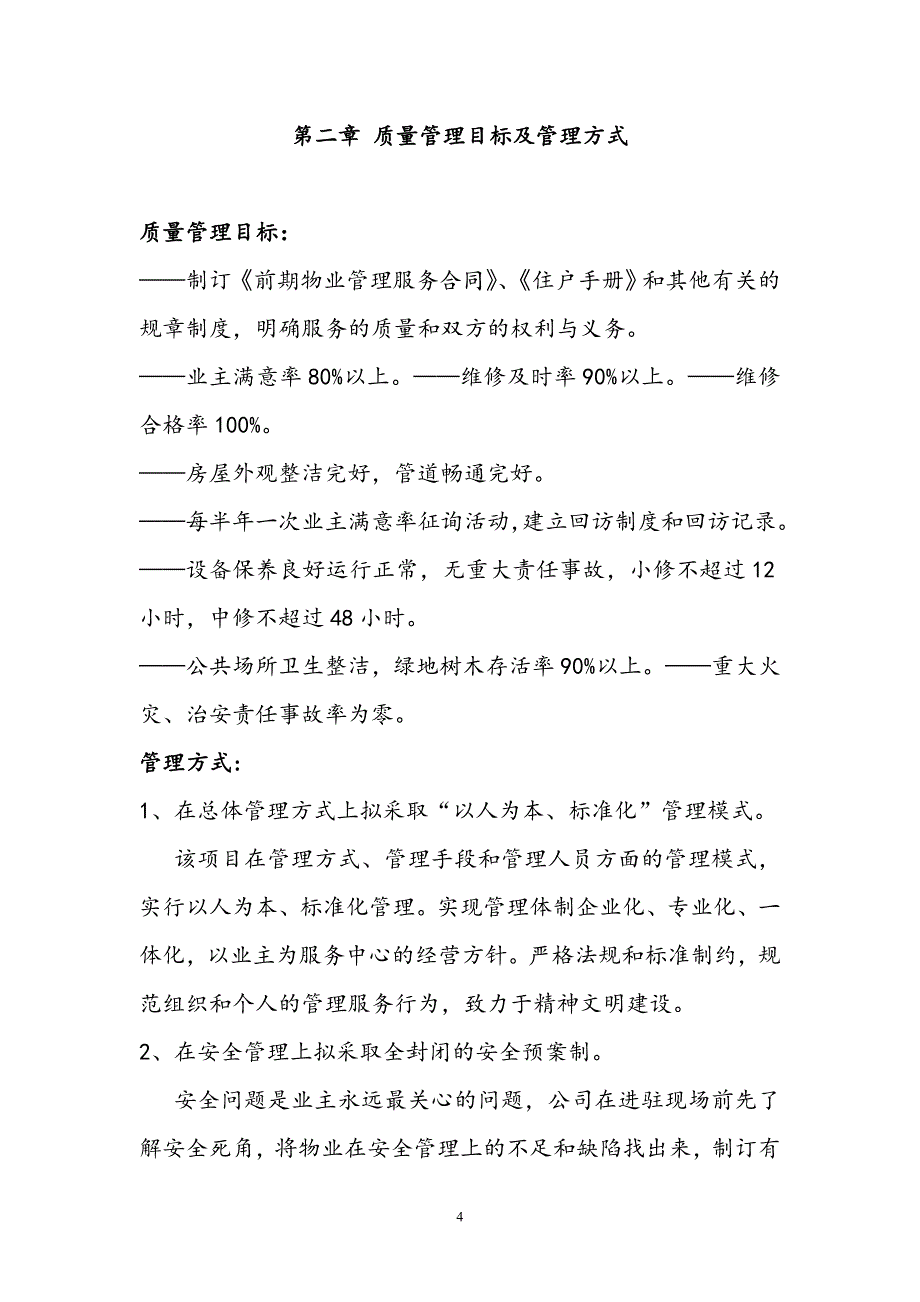 第二章 质量管理目标及管理方式
质量管理目标：
——制订《前期物业管理服务合同》、《住户手册》和其他有关的
规章制度，明确服务的质量和双方的权利与义务。
——业主满意率80%以上。——维修及时率90%以上。——维修
合格率100%。
——房屋外观整洁完好，管道畅通完好。
——每半年一次业主满意率征询活动,建立回访制度和回访记录。
——设备保养良好运行正常，无重大责任事故，小修不超过12
小时，中修不超过48小时。
——公共场所卫生整洁，绿地树木存活率90%以上。——重大火
灾、治安责任事故率为零。
管理方式：
1、在总体管理方式上拟采取“以人为本、标准化”管理模式。
该项目在管理方式、管理手段和管理人员方面的管理模式，
实行以人为本、标准化管理。实现管理体制企业化、专业化、一
体化，以业主为服务中心的经营方针。严格法规和标准制约，规
范组织和个人的管理服务行为，致力于精神文明建设。
2、在安全管理上拟采取全封闭的安全预案制。
安全问题是业主永远最关心的问题，公司在进驻现场前先了
解安全死角，将物业在安全管理上的不足和缺陷找出来，制订有
4